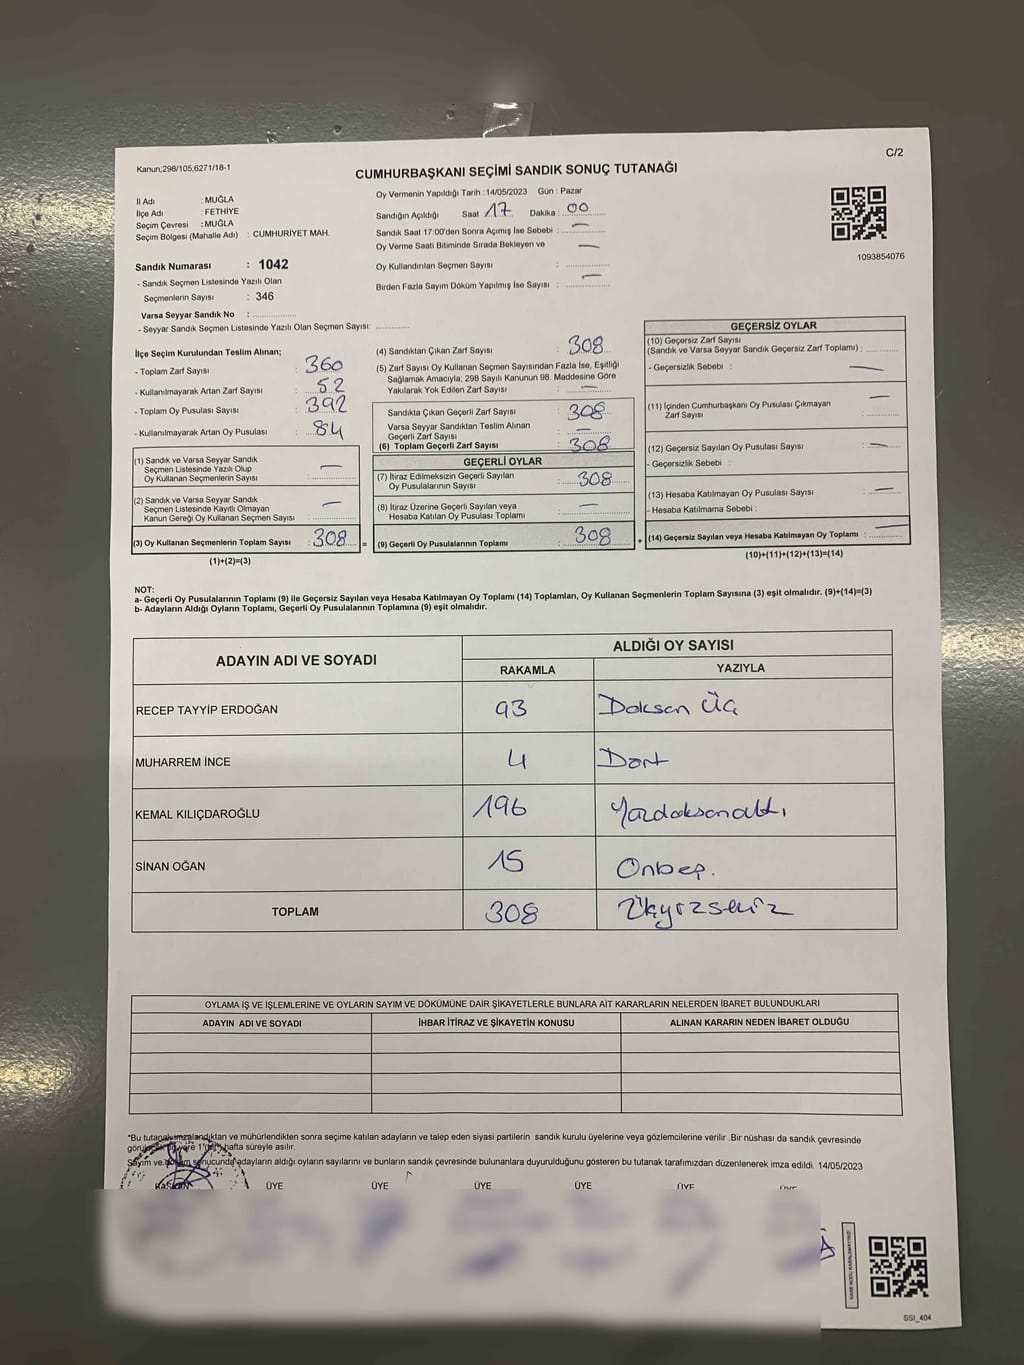 C/2
Kanun;298/105,6271/18-1
CUMHURBAŞKANI SEÇİMİ SANDIK SONUÇ TUTANAĞI
İl Adı : MUĞLA
İlçe Adı : FETHİYE
Seçim Çevresi : MUĞLA
Seçim Bölgesi (Mahalle Adı) : CUMHURİYET MAH.
Oy Vermenin Yapıldığı Tarih : 14/05/2023 Gün : Pazar
Sandığın Açıldığı Saat 17 Dakika : 00
Sandık Saat 17:00'den Sonra Açımış İse Sebebi : —
Oy Verme Saati Bitiminde Sırada Bekleyen ve —
Oy Kullandırılan Seçmen Sayısı :
Birden Fazla Sayım Döküm Yapılmış İse Sayısı : —
1093854076
Sandık Numarası : 1042
- Sandık Seçmen Listesinde Yazılı Olan
Seçmenlerin Sayısı : 346
Varsa Seyyar Sandık No :
- Seyyar Sandık Seçmen Listesinde Yazılı Olan Seçmen Sayısı:
İlçe Seçim Kurulundan Teslim Alınan;
- Toplam Zarf Sayısı : 360
- Kullanılmayarak Artan Zarf Sayısı : 52
- Toplam Oy Pusulası Sayısı : 392
- Kullanılmayarak Artan Oy Pusulası : 84
(1) Sandık ve Varsa Seyyar Sandık
Seçmen Listesinde Yazılı Olup
Oy Kullanan Seçmenlerin Sayısı : —
(2) Sandık ve Varsa Seyyar Sandık
Seçmen Listesinde Kayıtlı Olmayan
Kanun Gereği Oy Kullanan Seçmen Sayısı : —
(3) Oy Kullanan Seçmenlerin Toplam Sayısı : 308
(1)+(2)=(3)
=
(4) Sandıktan Çıkan Zarf Sayısı : 308
(5) Zarf Sayısı Oy Kullanan Seçmen Sayısından Fazla İse, Eşitliği
Sağlamak Amacıyla, 298 Sayılı Kanunun 98. Maddesine Göre
Yakılarak Yok Edilen Zarf Sayısı : —
Sandıkta Çıkan Geçerli Zarf Sayısı : 308
Varsa Seyyar Sandıktan Teslim Alınan
Geçerli Zarf Sayısı : —
(6) Toplam Geçerli Zarf Sayısı : 308
GEÇERLİ OYLAR
(7) İtiraz Edilmeksizin Geçerli Sayılan
Oy Pusulalarının Sayısı : 308
(8) İtiraz Üzerine Geçerli Sayılan veya
Hesaba Katılan Oy Pusulası Toplamı : —
(9) Geçerli Oy Pusulalarının Toplamı : 308
+
GEÇERSİZ OYLAR
(10) Geçersiz Zarf Sayısı
(Sandık ve Varsa Seyyar Sandık Geçersiz Zarf Toplamı) :
- Geçersizlik Sebebi : —
(11) İçinden Cumhurbaşkanı Oy Pusulası Çıkmayan —
Zarf Sayısı :
(12) Geçersiz Sayılan Oy Pusulası Sayısı : —
- Geçersizlik Sebebi :
(13) Hesaba Katılmayan Oy Pusulası Sayısı : —
- Hesaba Katılmama Sebebi :
(14) Geçersiz Sayılan veya Hesaba Katılmayan Oy Toplamı : —
(10)+(11)+(12)+(13)=(14)
NOT:
a- Geçerli Oy Pusulalarının Toplamı (9) ile Geçersiz Sayılan veya Hesaba Katılmayan Oy Toplamı (14) Toplamları, Oy Kullanan Seçmenlerin Toplam Sayısına (3) eşit olmalıdır. (9)+(14)=(3)
b- Adayların Aldığı Oyların Toplamı, Geçerli Oy Pusulalarının Toplamına (9) eşit olmalıdır.
ADAYIN ADI VE SOYADI
ALDIĞI OY SAYISI
RAKAMLA YAZIYLA
RECEP TAYYİP ERDOĞAN 93 Doksan Üç
MUHARREM İNCE 4 Dört
KEMAL KILIÇDAROĞLU 196 Yüzdoksanaltı
SİNAN OĞAN 15 Onbeş.
TOPLAM 308 Üçyüzsekiz
OYLAMA İŞ VE İŞLEMLERİNE VE OYLARIN SAYIM VE DÖKÜMÜNE DAİR ŞİKAYETLERLE BUNLARA AİT KARARLARIN NELERDEN İBARET BULUNDUKLARI
ADAYIN ADI VE SOYADI İHBAR İTİRAZ VE ŞİKAYETİN KONUSU ALINAN KARARIN NEDEN İBARET OLDUĞU
*Bu tutanak imzalandıktan ve mühürlendikten sonra seçime katılan adayların ve talep eden siyasi partilerin sandık kurulu üyelerine veya gözlemcilerine verilir .Bir nüshası da sandık çevresinde
hafta süreyle asılır.
Sayım ve döküm sonucunda adayların aldığı oyların sayılarını ve bunların sandık çevresinde bulunanlara duyurulduğunu gösteren bu tutanak tarafımızdan düzenlenerek imza edildi. 14/05/2023
BAŞKAN ÜYE ÜYE ÜYE ÜYE ÜYE ÜYE
SSI_404